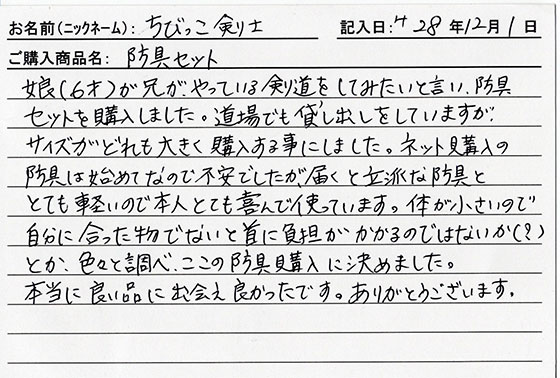 お名前(ニックネーム): ちびっこ剣士 記入日: H 28 年 12 月 1 日
ご購入商品名: 防具セット
娘(6才)が兄が、やっている剣道をしてみたいと言い、防具
セットを購入しました。道場でも貸し出しをしていますが、
サイズがどれも大きく購入する事にしました。ネット購入の
防具は始めてなので不安でしたが、届くと立派な防具と
とても軽いので本人とても喜んで使っています。体が小さいので
自分に合った物でないと首に負担がかかるのではないか(?)
とか、色々と調べ、ここの防具購入に決めました。
本当に良い品に出会え良かったです。ありがとうございます。